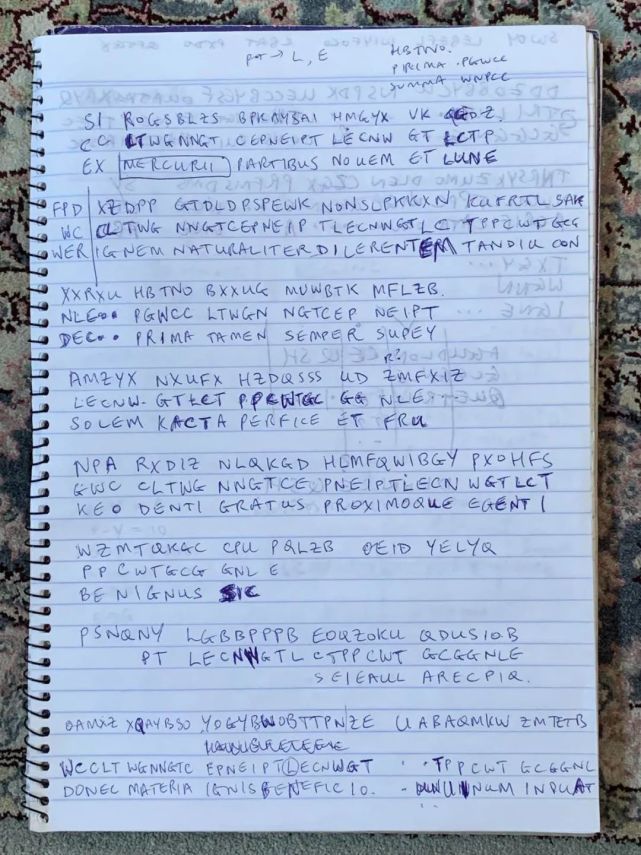 pt → L, E
HBTNO.
PRIMA . PGWCC
SUMMA WNPCC
SI ROGSBLZS BPKNYBAI HMGYX VK
LTWGNNGT CEPNEIPT LECNW GT LCTP
EX MERCURII PARTIBUS NOUEM ET LUNE
FPD XZDPP GTDLDPSPEWK NONSLPKKXN KUFRTL SAK
WC CLTWG NNGTCEPNEIP TLECNNGTLC TPPCWTGCG
WER IGNEM NATURALITER DILERENTEM TANDIU CON
XXRXU HBTNO BXXUG MUWBTK MFLZB.
NLE•• PGWCC LTWGN NGTCEP NEIPT
DEC•• PRIMA TAMEN SEMPER SUPEY
R?
AMZYX NXUFX HZDQSSS UD ZMFXIZ
LECNW- GTLCT PPCWTGC GG NLE
SOLEM KACTA PERFICE ET FRU
NPA RXDIZ NLQKGD HLMFQWIBGY PXDHFS
GWC CLTWG NNGTCE PNEIPTLECN WGTLCT
KEO DENTI GRATUS PROXIMOQUE EGENTI
WZMTQKGC CPU PQLZB OEID YELYQ
PPCWTGCG GNL E
BENIGNUS SIC
PSNQNY LGBBPPPB EOQZOKU QDUSIOB
PT LECNNGTL CTPPCWT GCGGNLE
SEIEAUL ARECPIQ.
OAMXZ XQAYBSO YOGYBWOBTTPNZE UABAQMKW ZMTETB
WCCLT WGNNGTC EPNEIPTLECNWGT TPPCWT GCGGNL
DONEC MATERIA IGNISBENEFICIO.